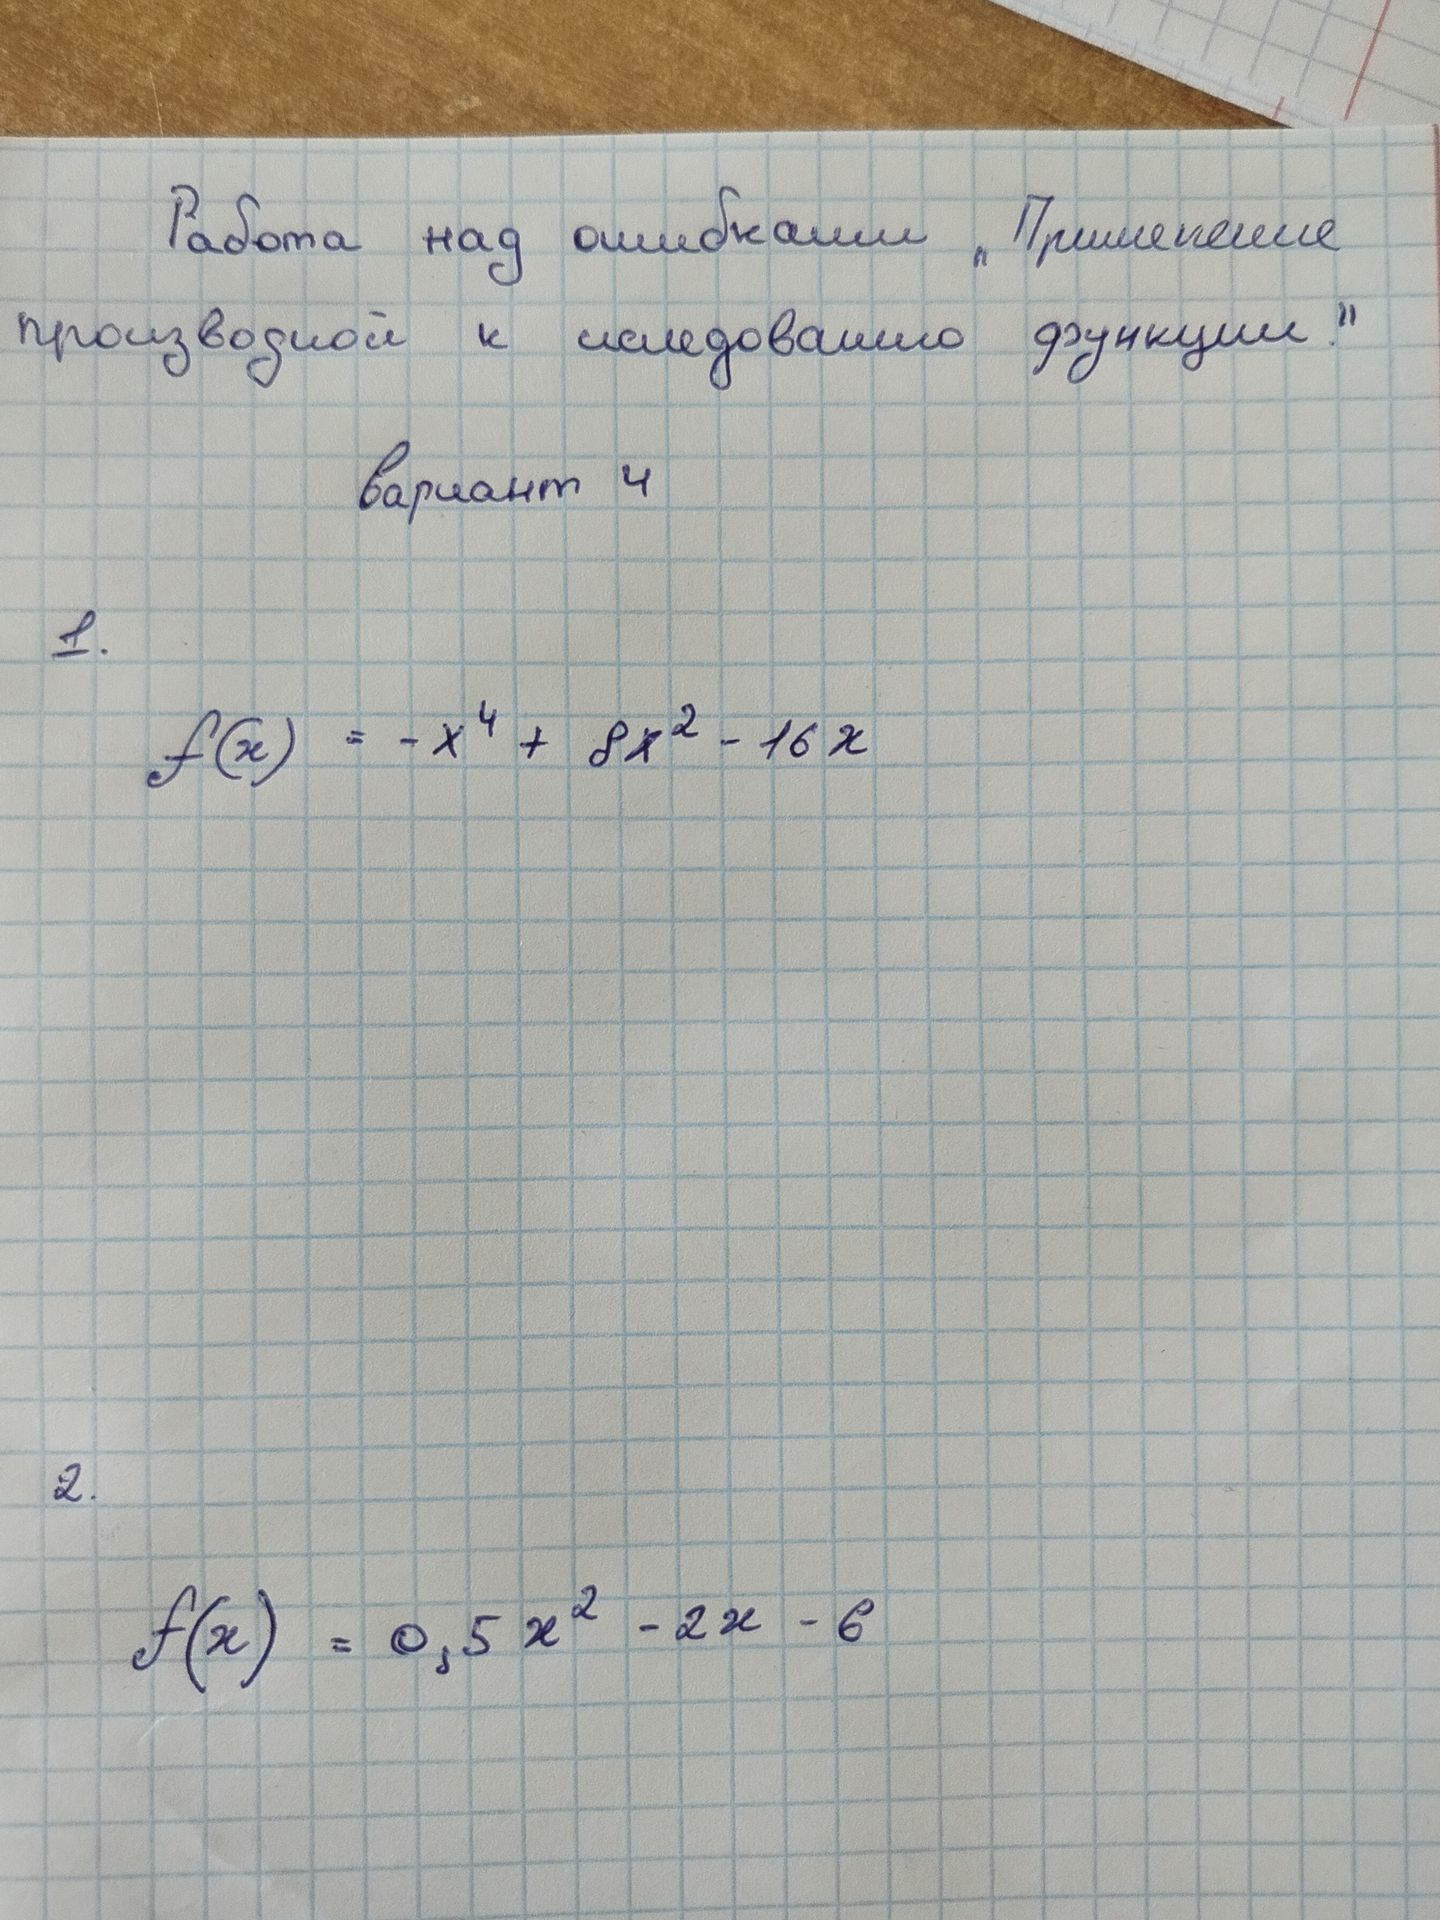 Работа над ошибками „Применение
производной к исследованию функции."
вариант 4
1.
f(x) = -x⁴ + 8x² - 16x
2.
f(x) = 0,5x² - 2x - 6